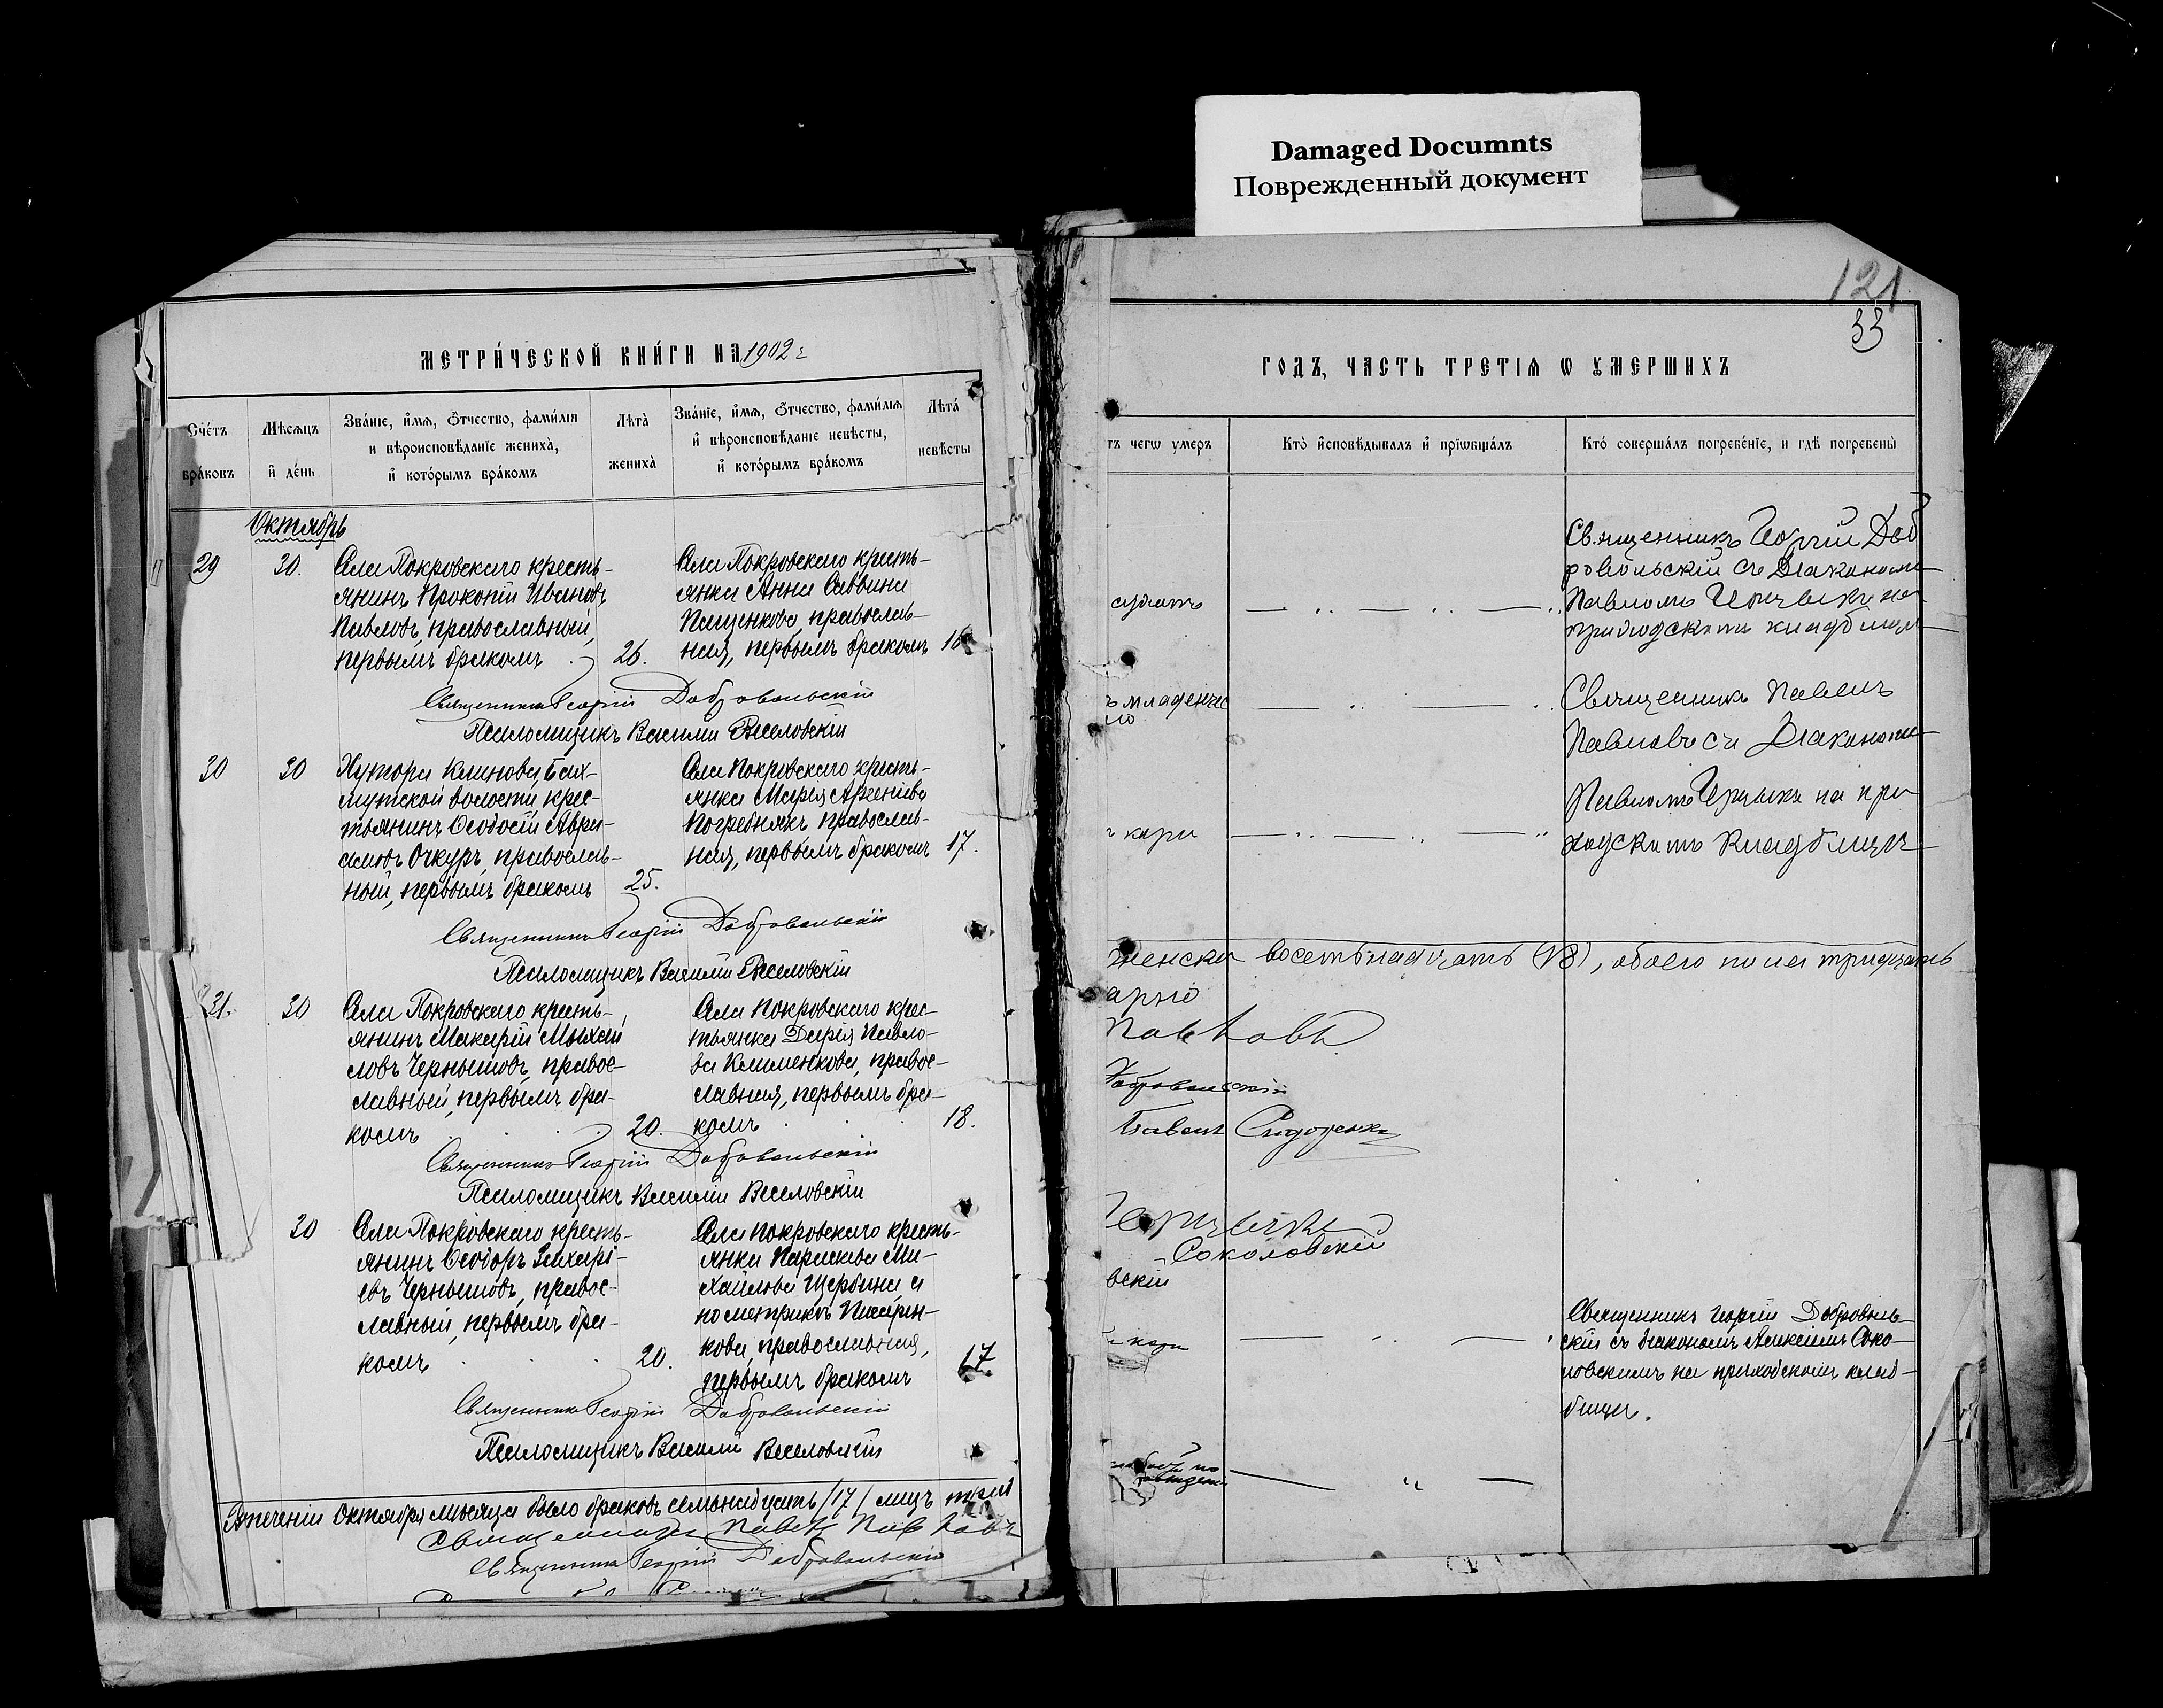 Damaged Documnts
Поврежденный документ
121
33
МЕТРИ́ЧЕСКОЙ КНИ́ГИ НА 1902 г
Сче́тъ
бра́ковъ
Мѣ́сяцъ
и҆ де́нь
Зва́нїе, и҆́мѧ, ѻ҆́тчество, фами́лїѧ
и вѣроисповѣ́данїе жениха̀,
и҆ кото́рымъ бра́комъ
Лѣта̀
жениха̀
Зва́нїе, и҆́мѧ, ѻ҆́тчество, фами́лїѧ
и҆ вѣроисповѣ́данїе невѣ́сты,
и҆ кото́рымъ бра́комъ
Лѣта́
невѣ́сты
Октябрь
29
30.
Села Покровскаго кресть-
янинъ Прокопій Ивановъ
Павловъ, православный,
первымъ бракомъ
26.
Села Покровскаго кресть-
янка Анна Саввина
Пащенкова, православ-
ная, первымъ бракомъ
16
Священникъ Георгій Добровольскій
Псаломщикъ Василій Веселовскій
30
30
Хутора Клинова, Бах-
мутской волости, крес-
тьянинъ Ѳеодосій Авра-
амовъ Очкуръ, православ-
ный, первымъ бракомъ
25.
Села Покровскаго кресть-
янка Марія Арсеніева
Погребнякъ православ-
ная, первымъ бракомъ
17.
Священникъ Георгій Добровольскій
Псаломщикъ Василій Веселовскій
31.
30
Села Покровскаго кресть-
янинъ Макарій Михаи
ловъ Чернышовъ, правос-
лавный, первымъ бра-
комъ
20.
Села Покровскаго крес-
тьянка Дарія Павло-
ва Клименкова, правос-
лавная, первымъ бра-
комъ
18.
Священникъ Георгій Добровольскій
Псаломщикъ Василій Веселовскій
30
Села Покровскаго кресть-
янинъ Ѳеодоръ Захарі-
евъ Чернышовъ, правос-
лавный, первымъ бра-
комъ
20.
Села Покровскаго кресть-
янка Параскева Ми-
хайлова Щербина, а
по метрикѣ
кова, православная,
первымъ бракомъ
17.
Священникъ Георгій Добровольскій
Псаломщикъ Василій Веселовскій
Втеченіи Октября мѣсяца было браковъ семьнадцать /17/ лицъ
Священникъ Павелъ Павловъ
Священникъ Георгій Добровольскій
ГОДЪ, ЧАСТЬ ТРЕТІѦ Ѡ ОУМЕРШИХЪ
тъ чегѡ умеръ
Кто̀ и҆сповѣ́дывалъ и҆ прїѡбща́лъ
Кто́ соверша́лъ погребе́нїе, и гдѣ̀ погребены̀
Священникъ Георгій Доб
ровольскій съ Діакономъ
Павломъ на
приходскомъ кладбищѣ
ъ младенчес
Священникъ Павелъ
Павловъ съ Діакономъ
Павломъ на при
ходскомъ кладбищѣ
ъ кори
женска восемьнадцать (18), обоего пола тридцать
Павловъ
Добровольскій
Павелъ Сидоренко
Соколовскій
вскій
Священникъ Георгій Доброволь-
скій съ діакономъ Алексіемъ Соко-
ловскимъ на приходскомъ клад-
бищѣ.